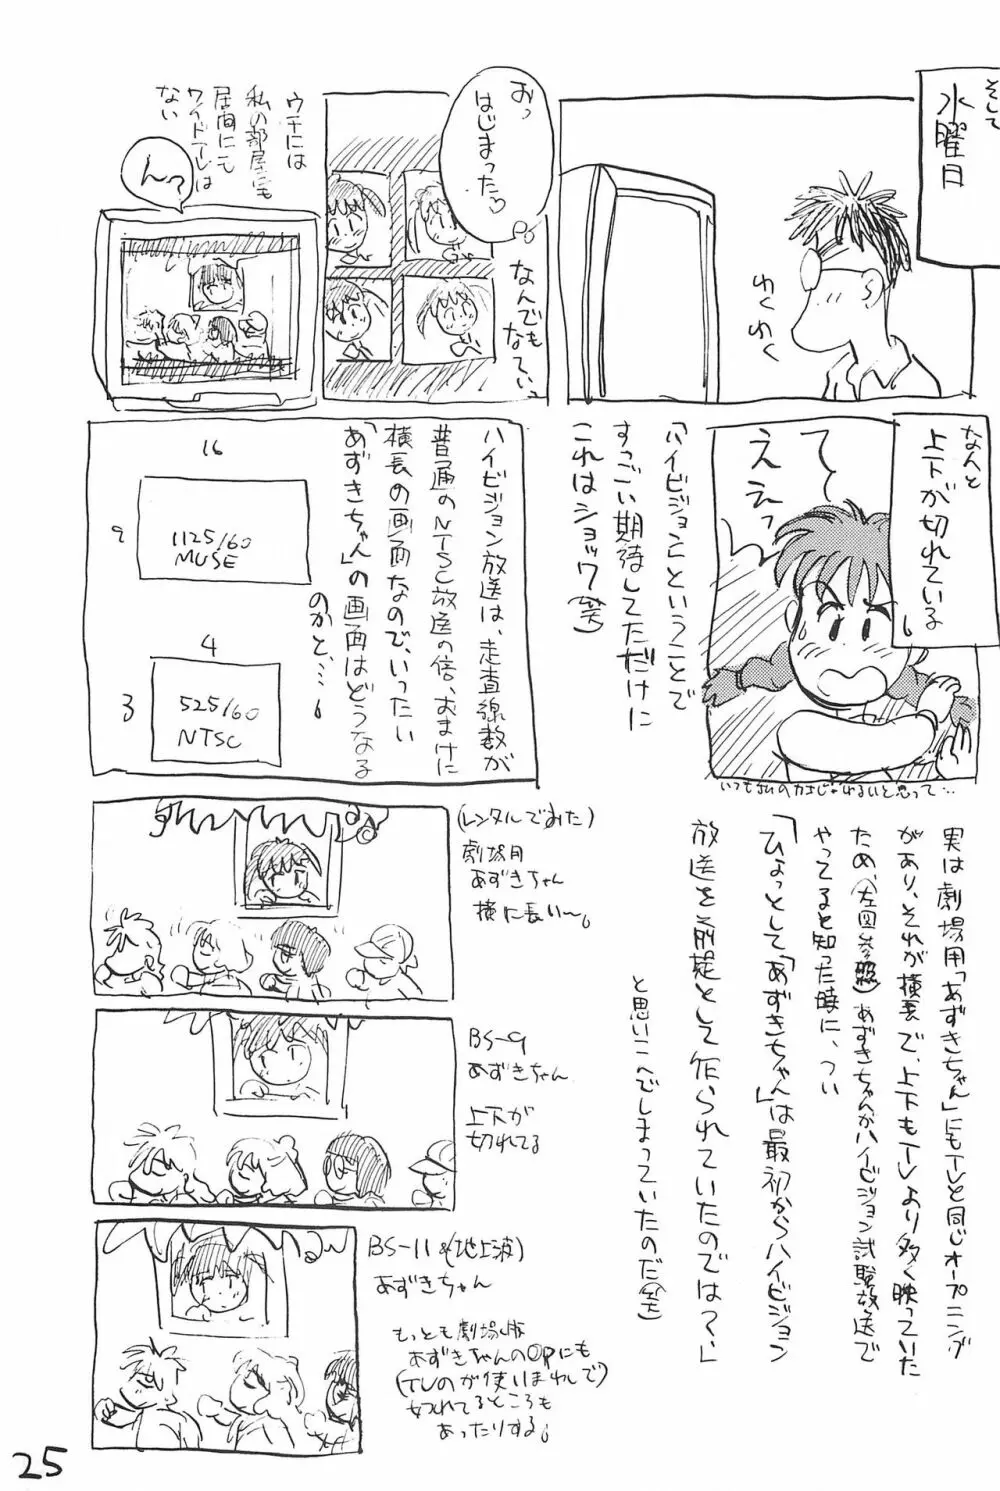 そして
水曜日
わくわく
おっ
はじまった♡
なんでも
なてぃっ
ウチには
私の部屋にも
居間にも
ワイドテレビは
ない
んっ?
なんと
上下が切れている
えぇっ
て
いつも
と思って…
「ハイビジョン」ということで
すっごい期待してただけに
これはショック(笑)
ハイビジョン放送は、走査線数が
普通のNTSC放送の倍、おまけに
横長の画面なので、いったい
「あずきちゃん」の画面はどうなる
のかと、、、
16
9
1125/60
MUSE
4
3
525/60
NTSC
実は劇場用「あずきちゃん」にもTVと同じオープニング
があり、それが横長で、上下もTVより多く映っていた
ため、(左図参照)あずきちゃんがハイビジョン試験放送で
やってると知った時に、つい
「ひょっとして、「あずきちゃん」は最初からハイビジョン
放送を前提として作られていたのでは?」
と思いこんでしまっていたのだ(笑)
(レンタルでみた)
劇場用
あずきちゃん
横に長い〜。
BS-9
あずきちゃん
上下が
切れてる
BS-11&(地上波)
あずきちゃん
もっとも劇場版
あずきちゃんのOPにも
(TVのが使いまわしで)
切れてるところも
あったりする。
25